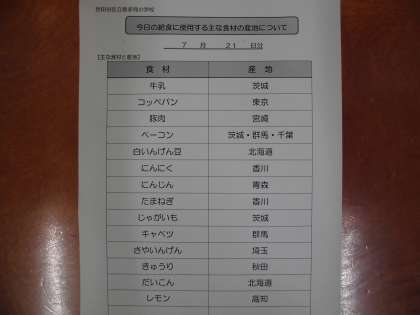 今日の給食に使用する主な食材の産地について
7 月 21 日分
【主な食材と産地】
食 材 産 地
牛乳 茨城
コッペパン 東京
豚肉 宮崎
ベーコン 茨城・群馬・千葉
白いんげん豆 北海道
にんにく 香川
にんじん 青森
たまねぎ 香川
じゃがいも 茨城
キャベツ 群馬
さやいんげん 埼玉
きゅうり 秋田
だいこん 北海道
レモン 高知